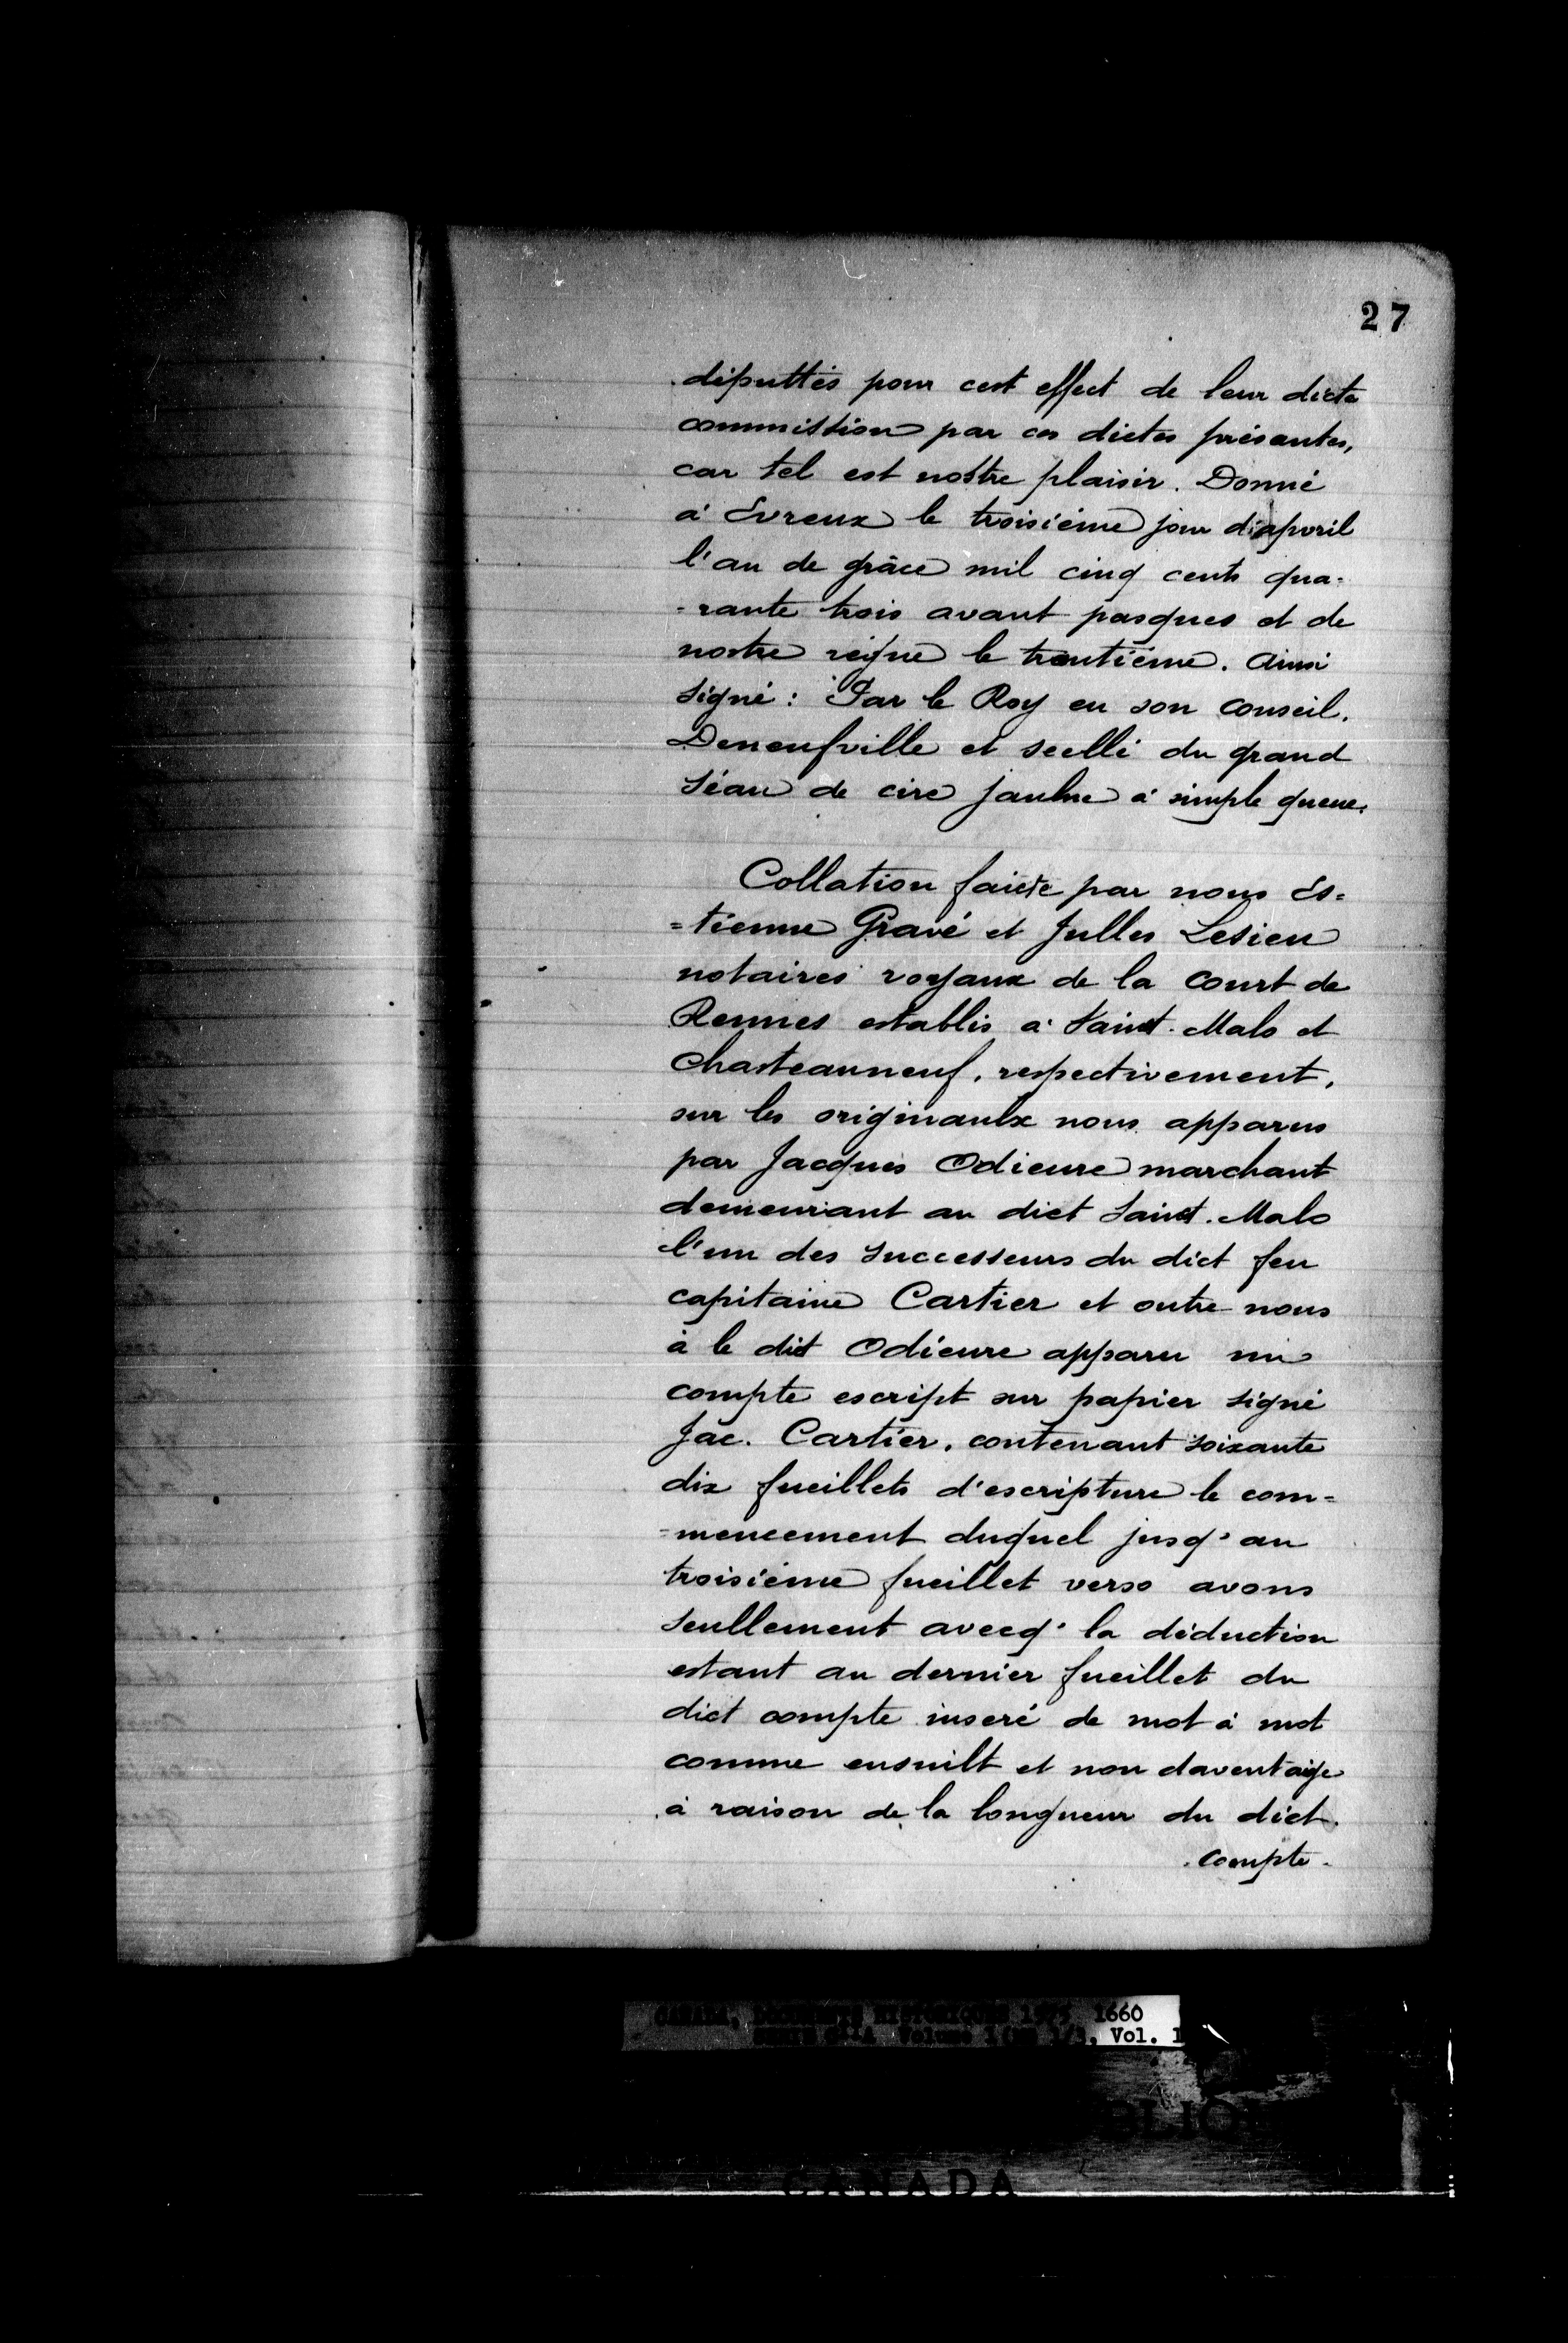 27
députtés pour cest effect de leur dicte
commission par ces dictes présantes,
car tel est nostre plaisir. Donné
à Evreux le troisiéme jour d'apvril
l'an de grâce mil cinq cents qua-
-rante trois avant pasques et de
nostre reigne le trentiéme. Ainsi
signé: Par le Roy en son conseil.
Deneufville et scellé du grand
séau de cire jaulne à simple queue.
Collation faicte par nous Es=
=tienne Gravé et Julles Lesieu
notaires royaux de la court de
Rennes establis à Sainct-Malo et
Chasteauneuf, respectivement,
sur les originaulx nous apparus
par Jacques Odieure marchant
demeurant au dict Sainct-Malo
l'un des successeurs du dict feu
capitaine Cartier et outre nous
à le dict Odieure apparu un
compte escript sur papier signé
Jac. Cartier, contenant soixante
dix fueillets d'escripture le com=
=mencement duquel jusq' au
troisiéme fueillet verso avons
seullement avecq' la déduction
estant au dernier fueillet du
dict compte inseré de mot à mot
comme ensuilt et non daventaige
à raison de la longueur du dict
compte.
1660
Vol. 1
CANADA